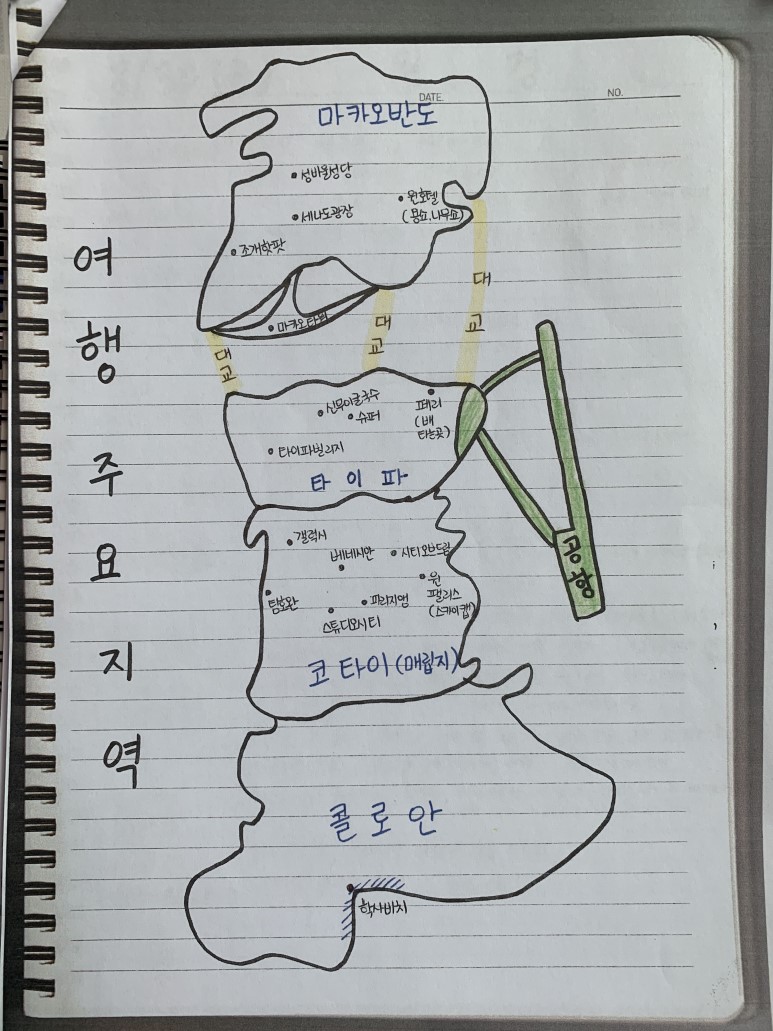 DATE.
NO.
마카오반도
성바울성당
윈호텔
(용쇼,나무쇼)
세나도광장
조개핫팟
마카오타워
대교
대교
대교
여행주요지역
신무이굴국수
슈퍼
페리
(배
타는곳)
타이파빌리지
타이파
공항
갤럭시
베네시안
시티오브드림
윈
팰리스
(스카이캡)
팀호완
파리지앵
스튜디오시티
코타이(매립지)
콜로안
학사비치